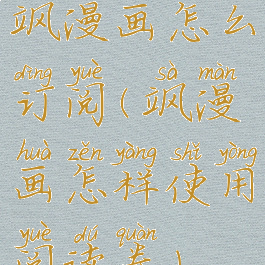 飒漫画怎么
dìng yuè sà màn
订阅(飒漫
huà zěn yàng shǐ yòng
画怎样使用
yuè dú quàn
阅读券)